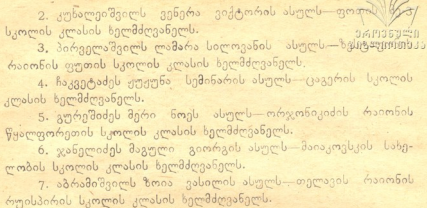 2. კუხალეიშვილს ვენერა ვიქტორის ასულს—ფოთის
სკოლის კლასის ხელმძღვანელს.
3. პირველაშვილს ლამარა სილოვანის ასულს—
რაიონის ფუთის სკოლის კლასის ხელმძღვანელს.
4. ჩაკვეტაძეს ჟუჟუნა სემინარის ასულს—ცაგერის სკოლის
კლასის ხელმძღვანელს.
5. გურეშიძეს მერი ნოეს ასულს—ორჯონიკიძის რაიონის
წყალფორეთის სკოლის კლასის ხელმძღვანელს.
6. ჯანელიძეს მაგული გიორგის ასულს—მაიაკოვსკის სახე-
ლობის სკოლის კლასის ხელმძღვანელს.
7. აბრამიშვილს ზოია ვასილის ასულს—თელავის რაიონის
რუისპირის სკოლის კლასის ხელმძღვანელს.
ეროვნული
ბიბლიოთეკა